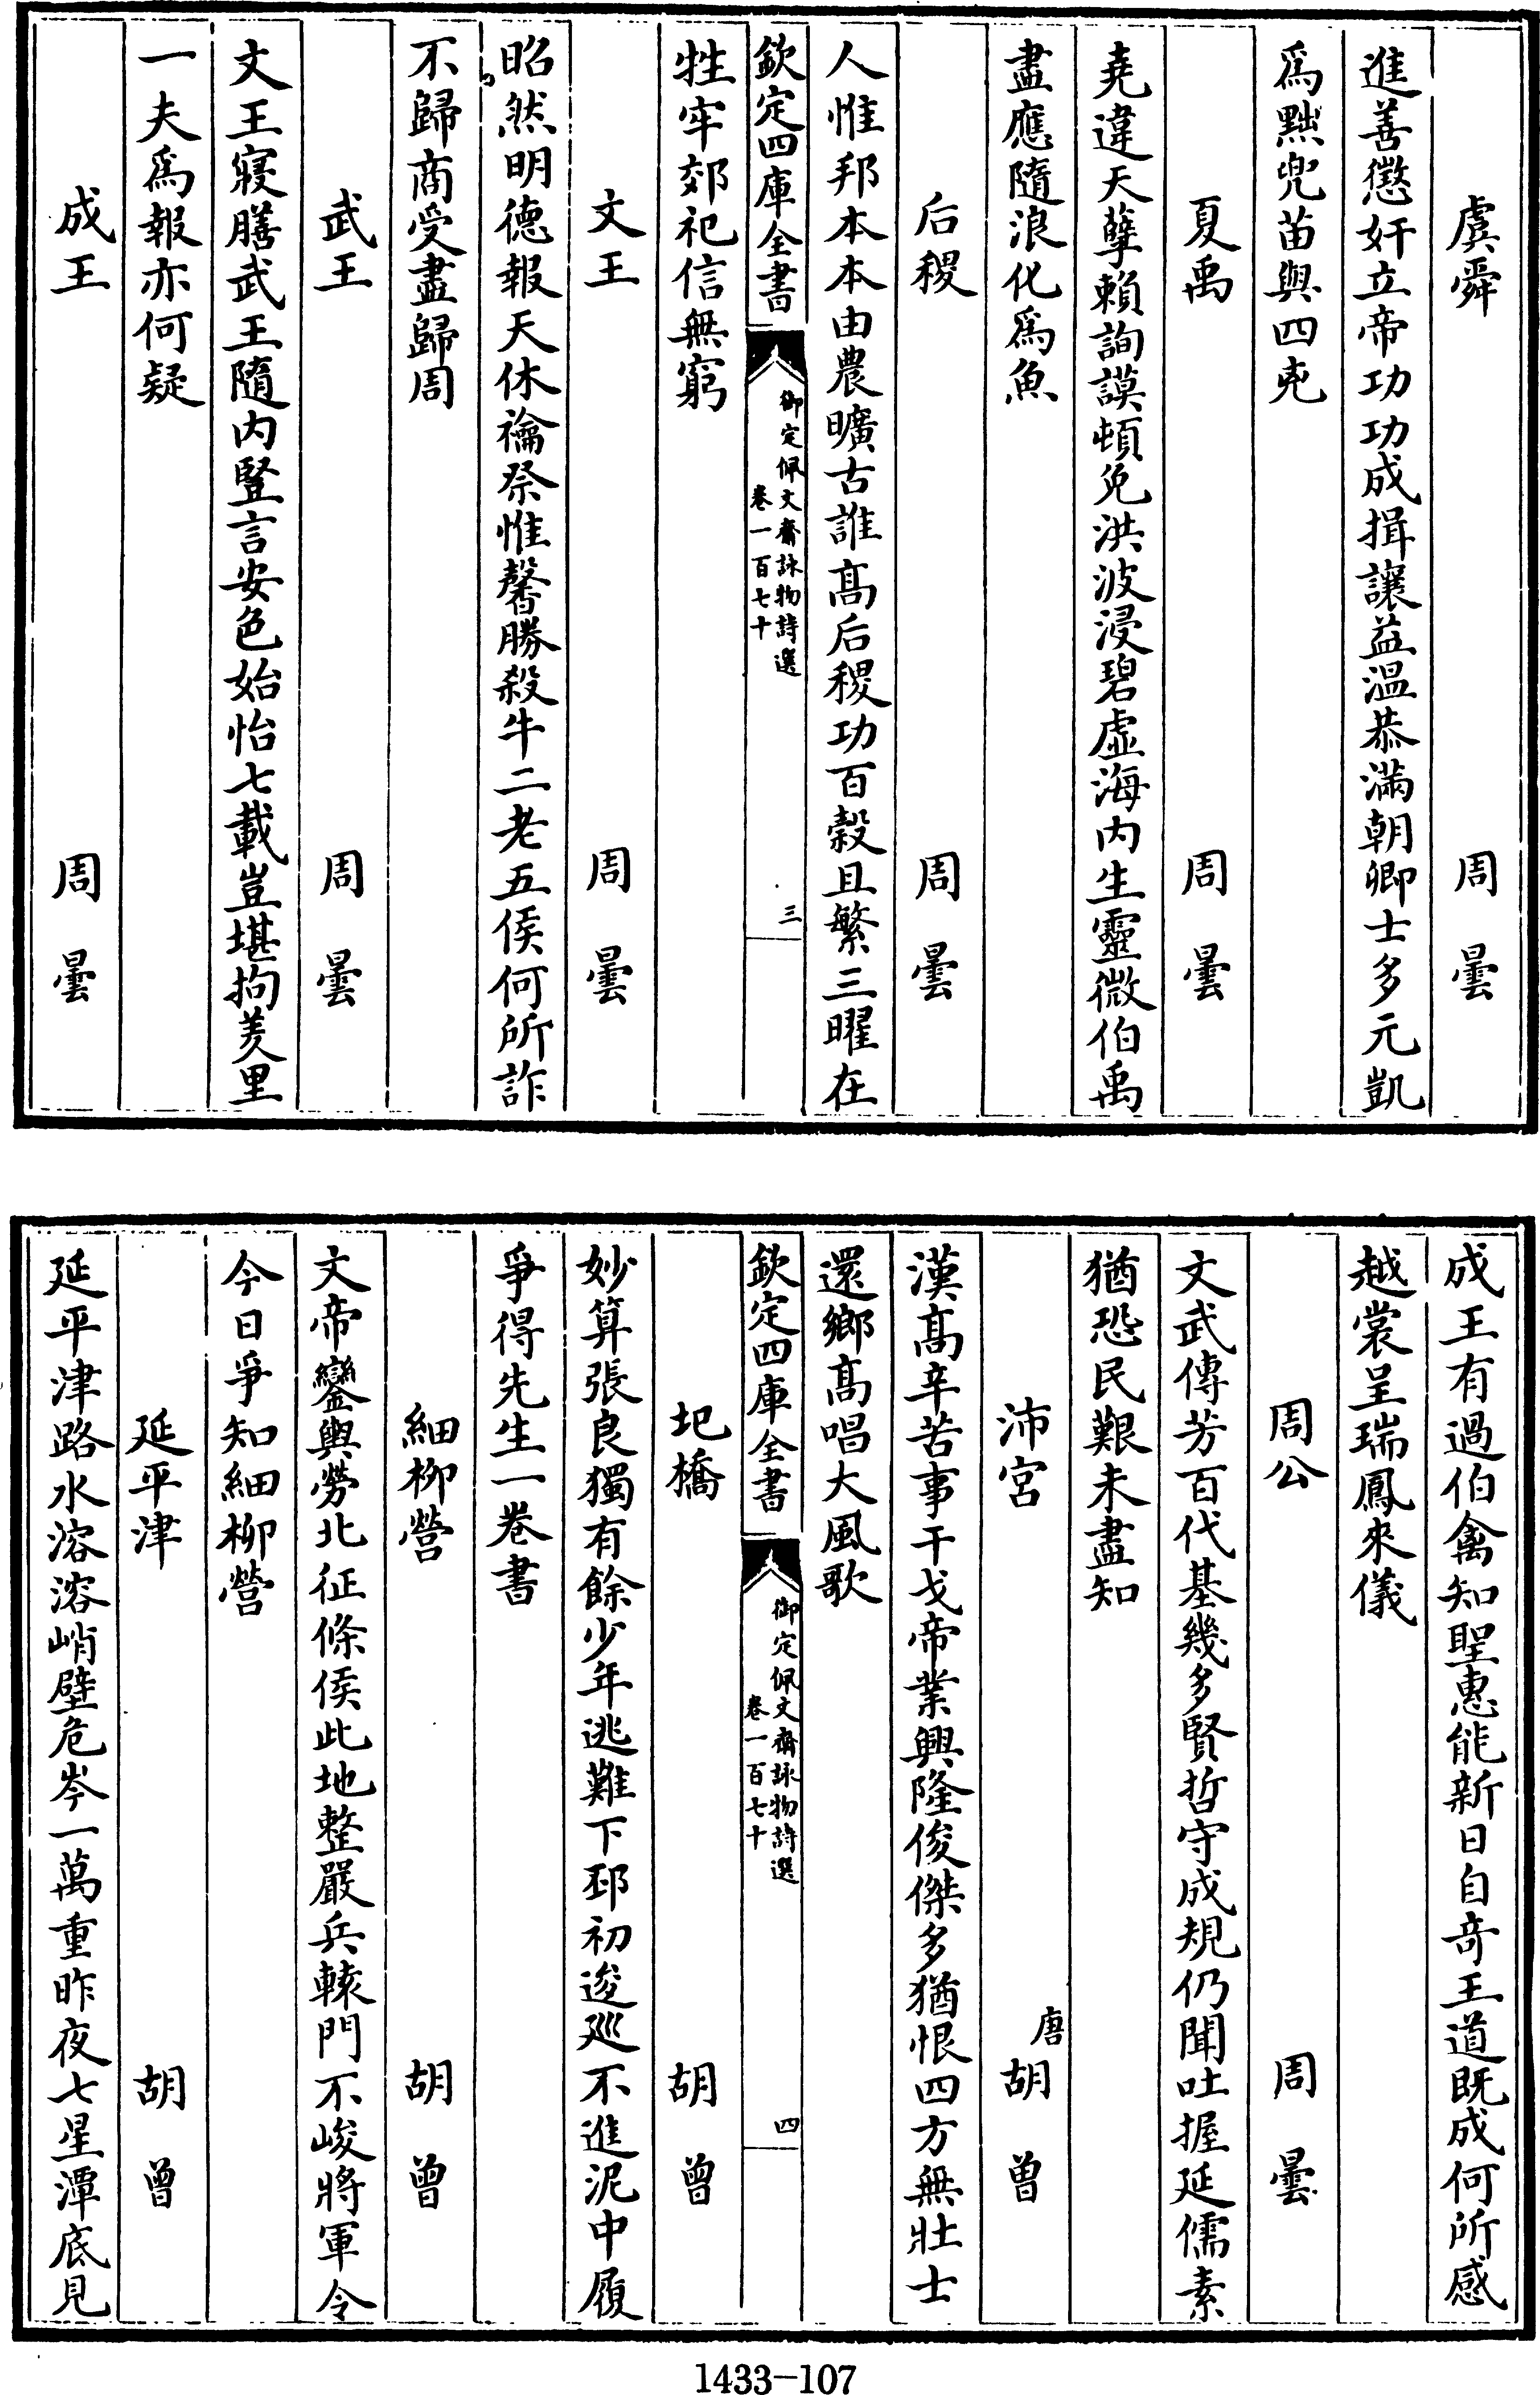 虞舜 周曇
進善懲奸立帝功功成揖讓益溫恭滿朝卿士多元凱
爲黜兜苗與四兇
夏禹 周曇
堯違天孽賴詢謨頓免洪波浸碧虛海内生靈微伯禹
盡應隨浪化爲魚
后稷 周曇
人惟邦本本由農曠古誰髙后稷功百穀且繁三曜在
欽定四庫全書
御定佩文齋詠物詩選
卷一百七十
三
牲牢郊祀信無窮
文王 周曇
昭然明德報天休禴祭惟馨勝殺牛二老五侯何所詐
不歸商受盡歸周
武王 周曇
文王寢膳武王隨内豎言安色始怡七載豈堪拘羑里
一夫爲報亦何疑
成王 周曇
成王有過伯禽知聖惠能新日自竒王道既成何所感
越裳呈瑞鳳來儀
周公 周曇
文武傳芳百代基幾多賢哲守成規仍聞吐握延儒素
猶恐民艱未盡知
沛宮 唐胡曽
漢髙辛苦事干戈帝業興隆俊傑多猶恨四方無壯士
還鄉髙唱大風歌
欽定四庫全書
御定佩文齋詠物詩選
卷一百七十
四
圯橋 胡曾
妙算張良獨有餘少年逃難下邳初逡廵不進泥中履
爭得先生一卷書
細柳營 胡曾
文帝鑾輿勞北征條侯此地整嚴兵轅門不峻將軍令
今日爭知細柳營
延平津 胡曾
延平津路水溶溶峭壁危岑一萬重昨夜七星潭底見
1433-107